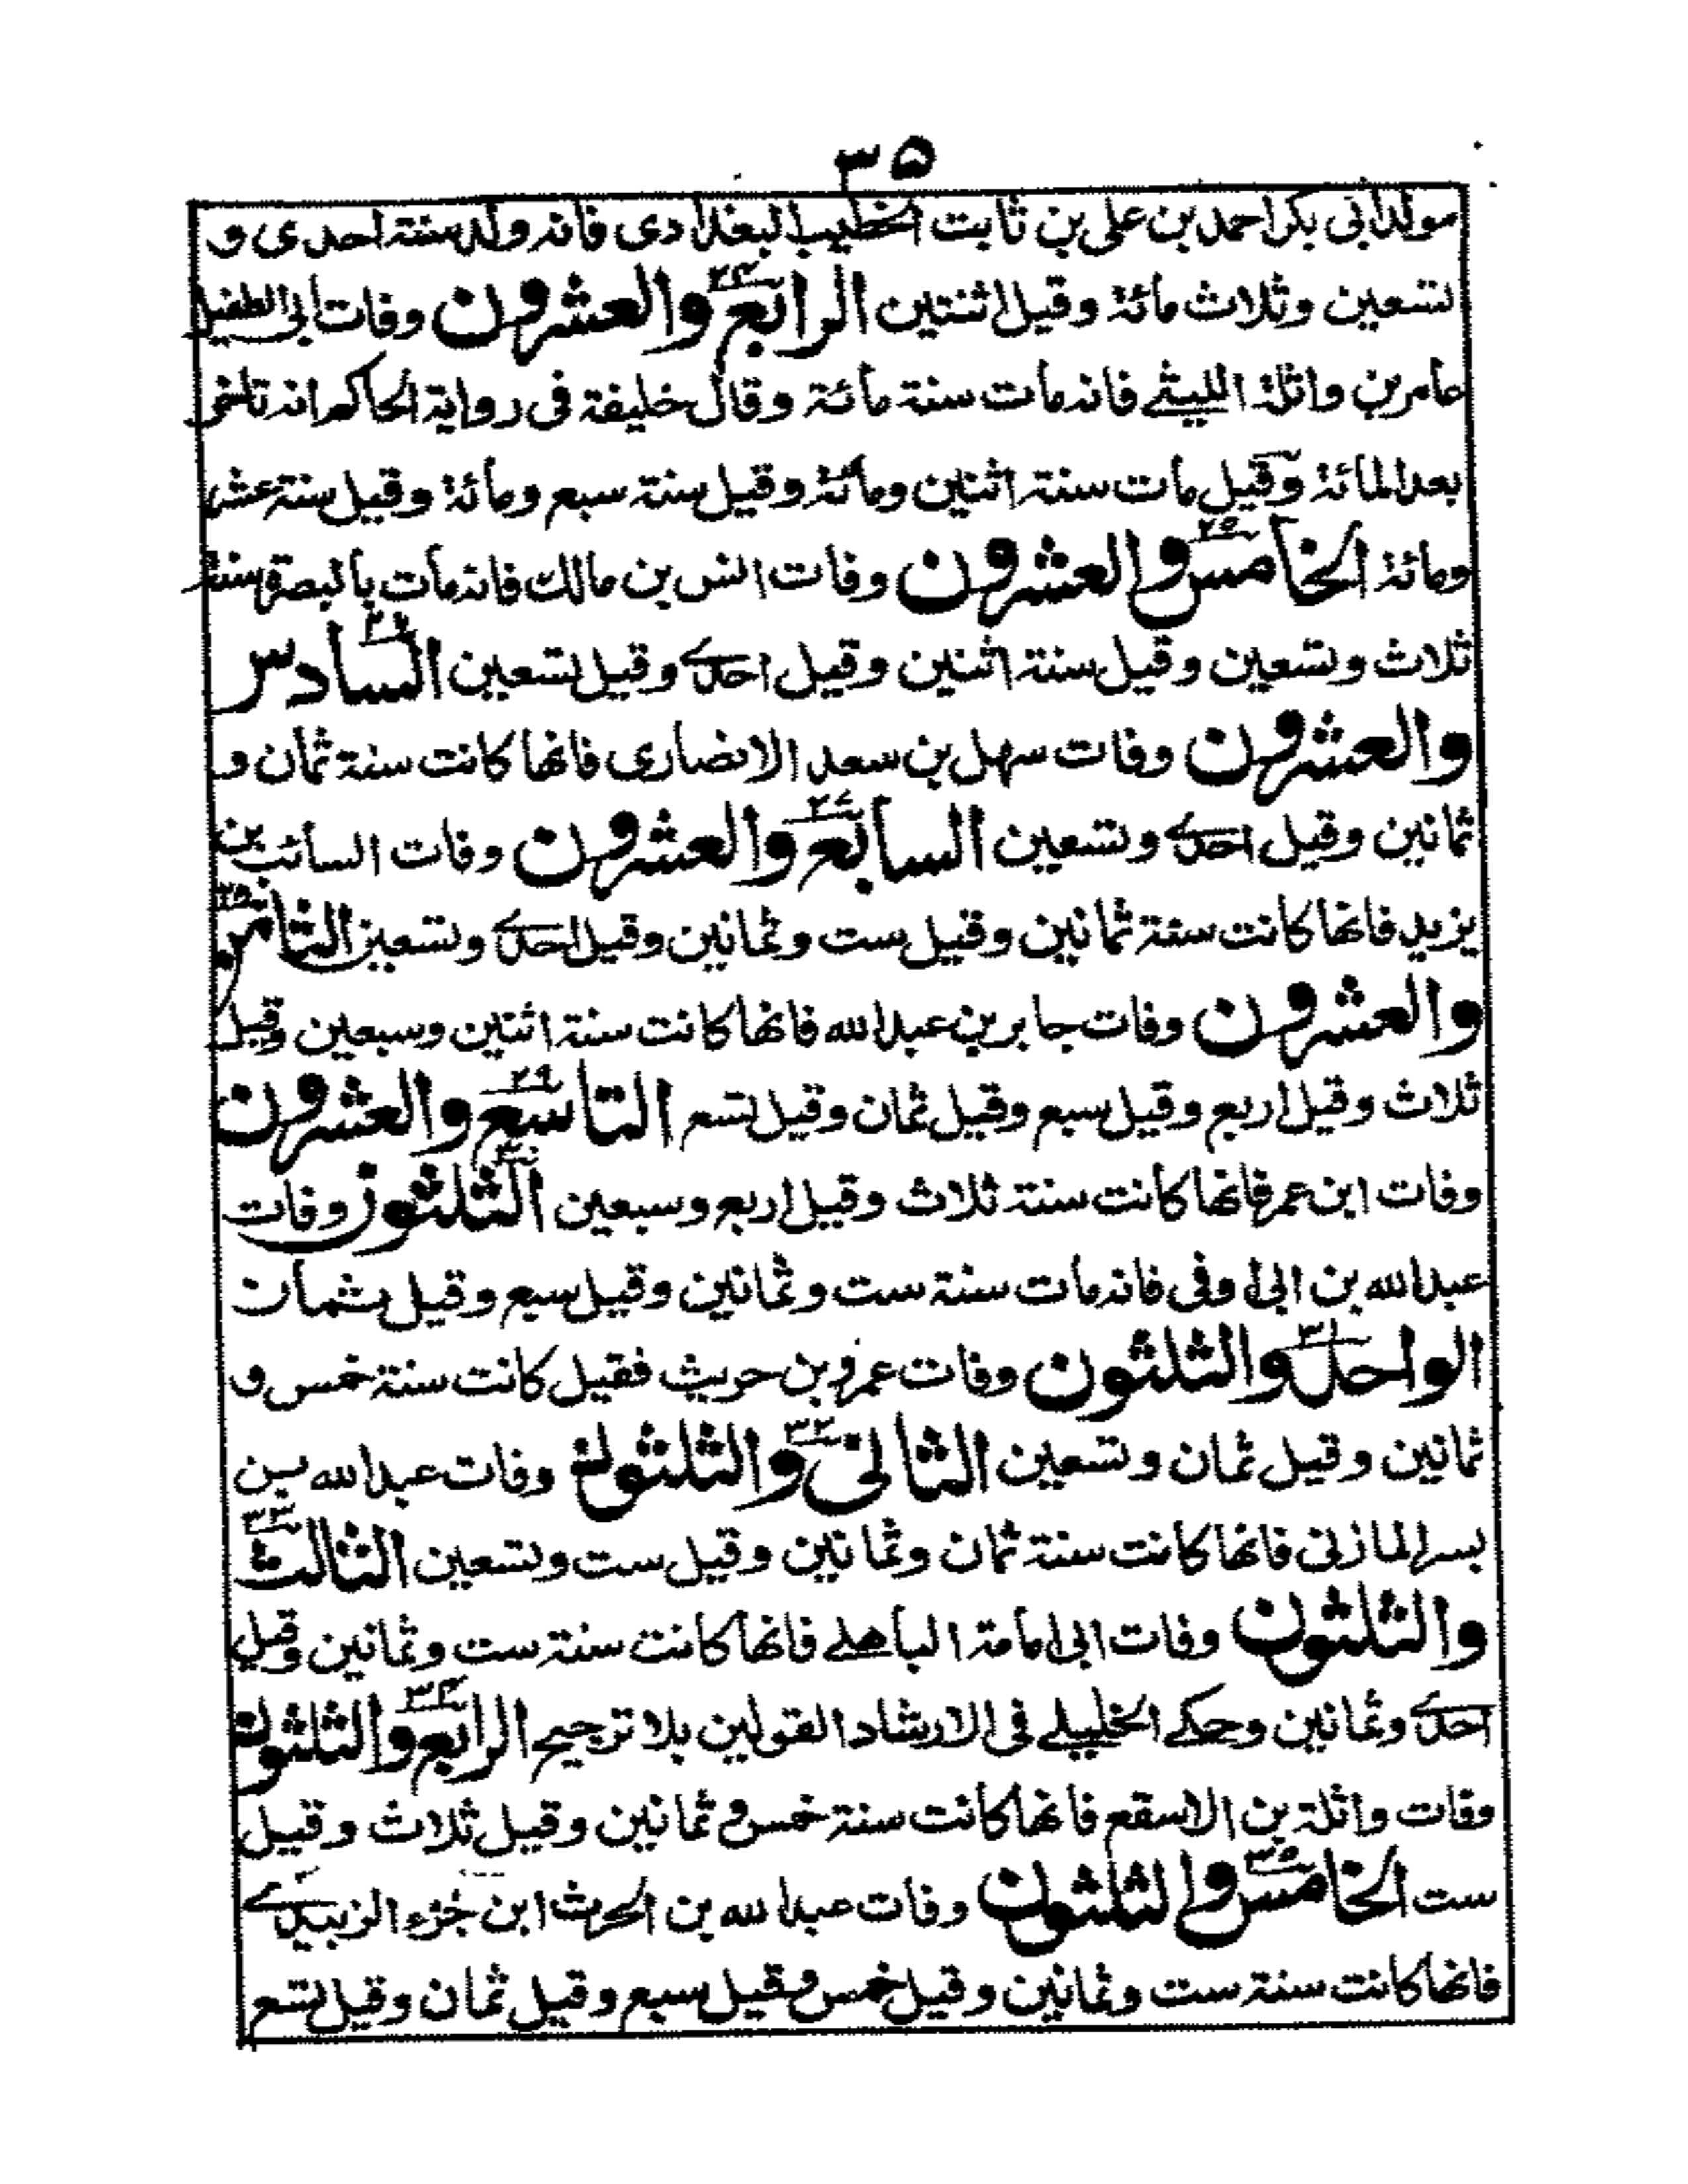 ٣٥
مولد ابی بكر احمد بن علی بن ثابت الخطيب البغدادی فانه ولد سنة احدی و
تسعين وثلاث مائة وقيل اثنتين الرابع والعشرون ٢٤ وفات ابی الطفيل
عامر بن واثلة الليثے فانه مات سنة مائة وقال خليفة فی رواية الحاكم انه تاخر
بعد المائة وقيل مات سنة اثنين ومائة وقيل سنة سبع ومائة وقيل سنة عشر
ومائة الخامس والعشرون ٢٥ وفات انس بن مالك فانه مات بالبصرة سنة
ثلاث وتسعين وقيل سنة اثنين وقيل احدے وقيل تسعين السادس ٢٦
والعشرون وفات سهل بن سعد الانصاری فانها كانت سنة ثمان و
ثمانين وقيل احدے وتسعين السابع والعشرون ٢٧ وفات السائب بن
يزيد فانها كانت سنة ثمانين وقيل ست وثمانين وقيل احدے وتسعين الثامن ٢٨
والعشرون وفات جابر بن عبد الله فانها كانت سنة اثنين وسبعين وقيل
ثلاث وقيل اربع وقيل سبع وقيل ثمان وقيل تسع التاسع والعشرون ٢٩
وفات ابن عمر فانها كانت سنة ثلاث وقيل اربع وسبعين الثلثون ٣٠ وفات
عبد الله بن ابی اوفی فانه مات سنة ست وثمانين وقيل سبع وقيل بثمان
الواحد والثلثون ٣١ وفات عمرو بن حريث فقيل كانت سنة خمس و
ثمانين وقيل ثمان وتسعين الثانی والثلثون ٣٢ وفات عبد الله بن
بسر المازنی فانها كانت سنة ثمان وثمانين وقيل ست وتسعين الثالث ٣٣
والثلثون وفات ابی امامة الباهلے فانها كانت سنة ست وثمانين وقيل
احدے وثمانين وحكے الخليلے فی الارشاد القولين بلا ترجيح الرابع والثلثون ٣٤
وفات واثلة بن الاسقع فانها كانت سنة خمس و ثمانين وقيل ثلاث وقيل
ست الخامس والثلثون ٣٥ وفات عبد الله بن الحرث ابن جزء الزبيدے
فانها كانت سنة ست وثمانين وقيل خمس وقيل سبع وقيل ثمان وقيل تسع